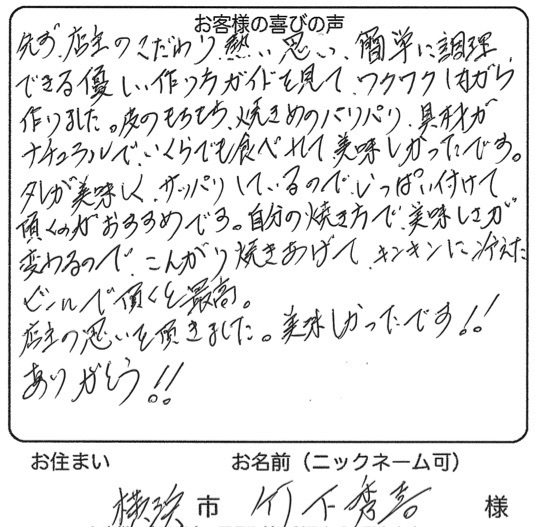 お客様の喜びの声
先ず、店主のこだわり、熱い思い、簡単に調理
できる優しい作り方ガイドを見て、ワクワクしながら
作りました。皮のもちもち、焼きめのパリパリ、具材が
ナチュラルで、いくらでも食べれて美味しかったです。
タレが美味しく、サッパリしているので、いっぱい付けて
頂くのがおすすめです。自分の焼き方で、美味しさが
変わるので、こんがり焼きあげて、キンキンに冷えた
ビールで頂くと最高。
店主の思いを頂きました。美味しかったです!!
ありがとう!!
お住まい お名前（ニックネーム可）
横浜 市 竹下秀喜 様